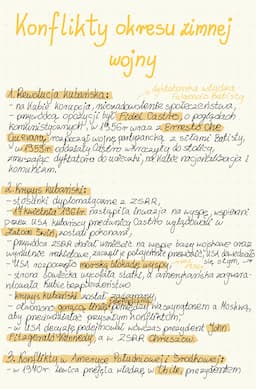 Konflikty okresu zimnej
wojny
dyktatorska władza
Fulgencio Batisty
1. Rewolucja kubańska:
- na Kubie korupcja, niezadowolenie społeczeństwa,
- przywódcą opozycji był Fidel Castro, o poglądach
komunistycznych, w 1956r wraz z Ernesto Che
Guevarą rozpoczął wojnę partyzancką z siłami Batisty,
- w 1959r oddziały Castro wkroczyły do stolicy,
zmuszając dyktatora do ucieczki, na Kubie nacjonalizacja i
komunizm.
2. Kryzys kubański:
- stosunki dyplomatyczne z ZSRR,
- 17 kwietnia 1961r. nastąpiła inwazja na wyspę, wspierani
przez USA kubańscy przeciwnicy Castro wylądowali w
Zatoce Świń, zostali pokonani,
- przywódca ZSRR dodał umieścić na wyspie bazy wojskowe oraz
wyrzutnie rakietowe, zaczął je potajemnie przewozić, USA dowiedziało
się o tym,
- USA rozpoczęło morską blokadę wyspy,
- strona sowiecka wycofała statki, a amerykańska zagwaran-
towała Kubie bezpieczeństwo
- kryzys kubański został zażegnany
- utworzono gorącą linię pomiędzy Waszyngtonem a Moskwą,
aby przeciwdziałać przyszłym konfliktom,
- w USA decyzje podejmował wówczas prezydent John
Fitzgerald Kennedy, a w ZSRR Chruszczow.
3. Konflikty w Ameryce Południowej i Środkowej:
- w 1970r lewica przejęła władzę w Chile, prezydentem